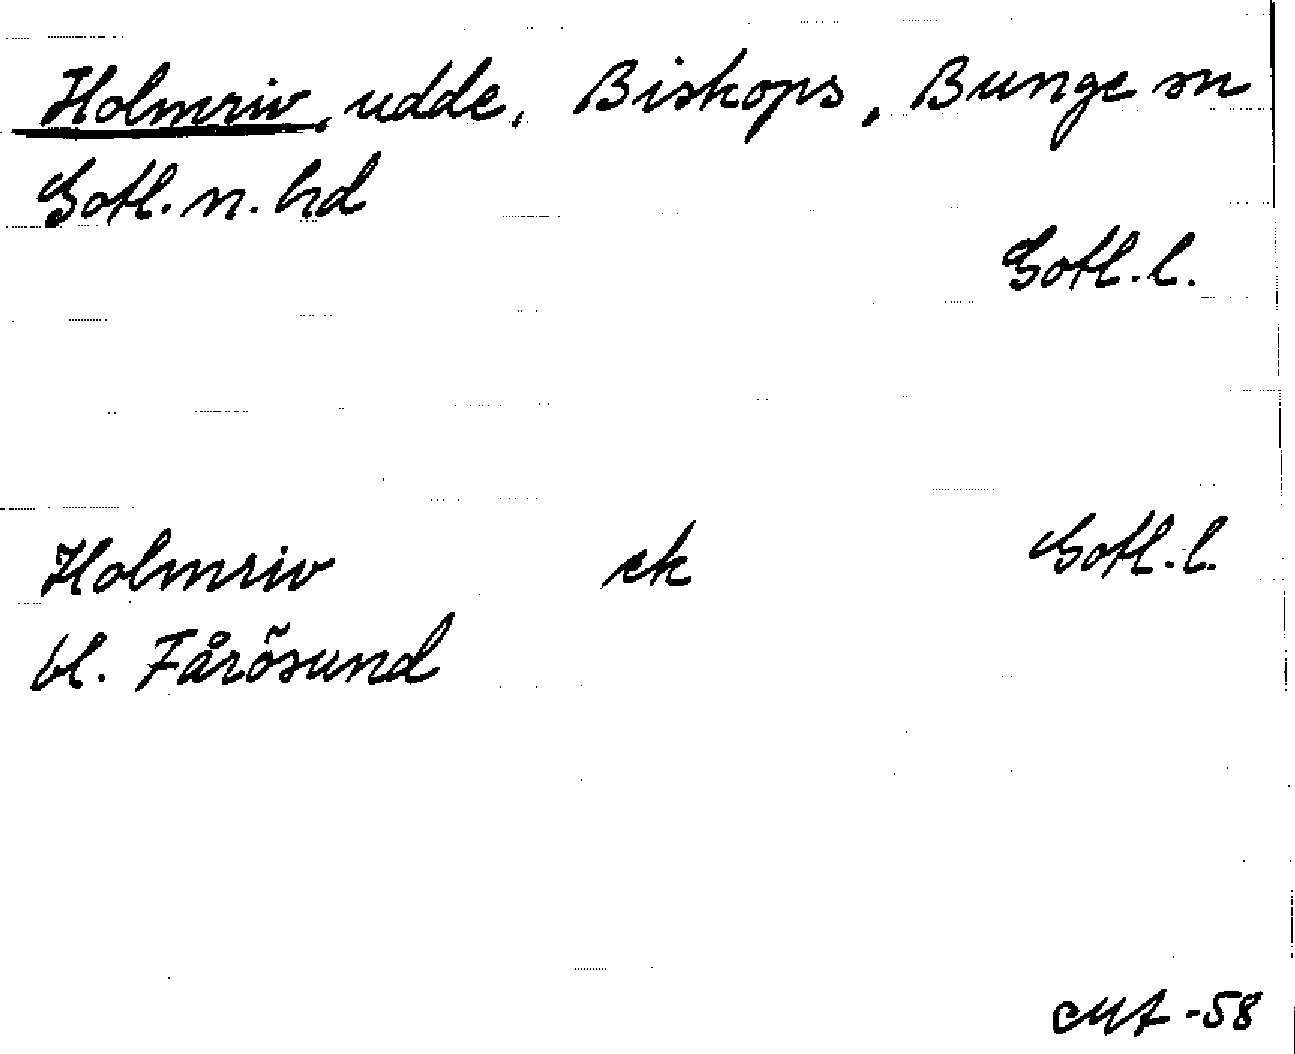 Holmriv, udde, Biskops, Bunge sn
Gotl. n. hd
Gotl. l.
Holmriv ek Gotl. l.
bl. Fårösund
-58